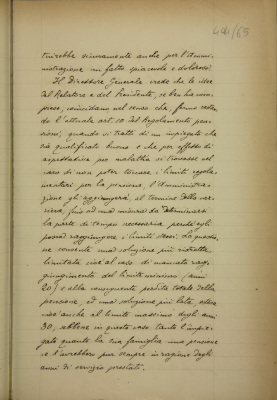 441/65
tuirebbe sicuramente anche per l'Ammi-
nistrazione un fatto spiacevole e doloroso.
Il Direttore Generale crede che le idee
del Relatore e del Presidente, se ben ha com-
preso, coincidano nel senso che, fermo restan-
do l'attuale art. 10 del Regolamento pen-
sioni, quando si tratti di un impiegato che
sia qualificato buono e che per effetto di
aspettativa per malattia si trovasse nel
caso di non poter toccare i limiti regola-
mentari per la pensione, l'Amministra-
zione gli aggiungerà, al termine della car-
riera, fino ad una misura da determinarsi
la parte di tempo necessaria perché egli
possa raggiungere i limiti stessi. La questio-
ne consente una soluzione più ristretta
limitata cioè al caso di mancato rag-
giungimento del limite minimo (anni
20) e alla conseguente perdita totale della
pensione, ed una soluzione più lata, estesa
cioè anche al limite massimo degli anni
30, sebbene in questo caso tanto l'impie-
gato quanto la sua famiglia una pensione
se l'avrebbero pur sempre in ragione degli
anni di servizio prestati.